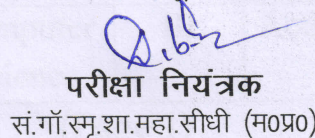 परीक्षा नियंत्रक
सं.गॉ.स्मृ.शा.महा.सीधी (म0प्र0)